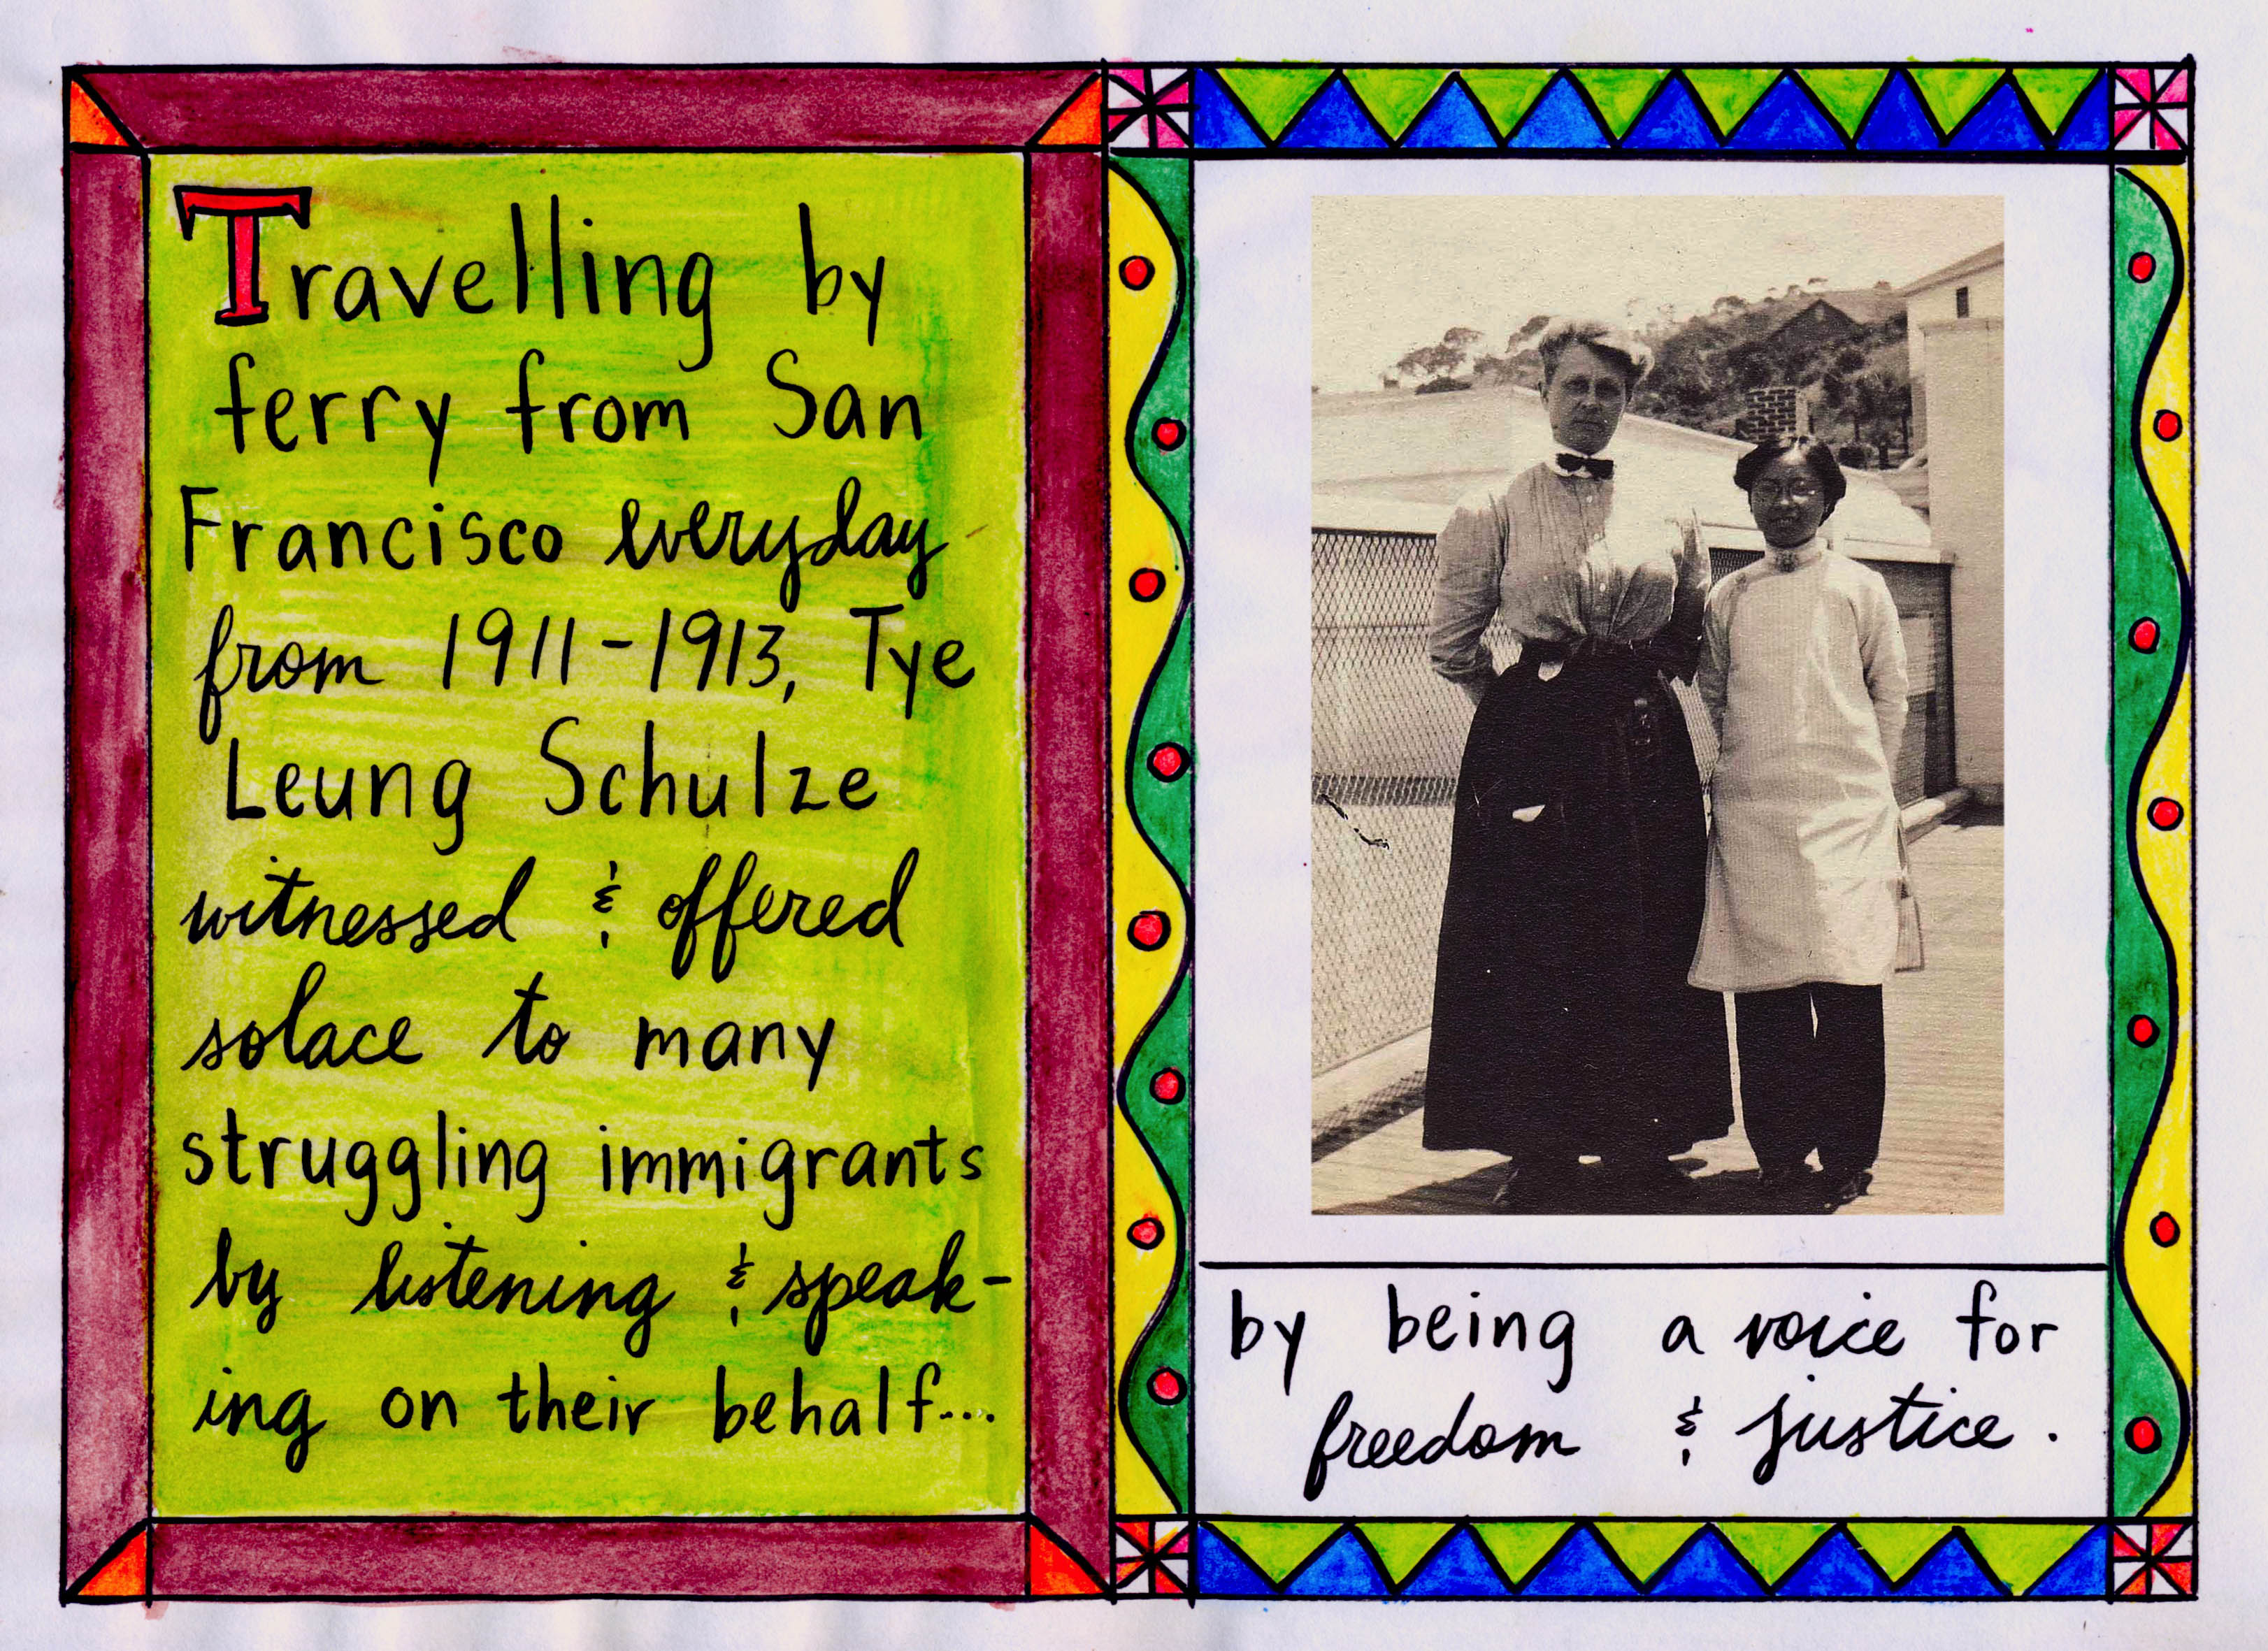 Travelling by
ferry from San
Francisco everyday
from 1911-1913, Tye
Leung Schulze
witnessed & offered
solace to many
struggling immigrants
by listening & speak-
ing on their behalf...
by being a voice for
freedom & justice.